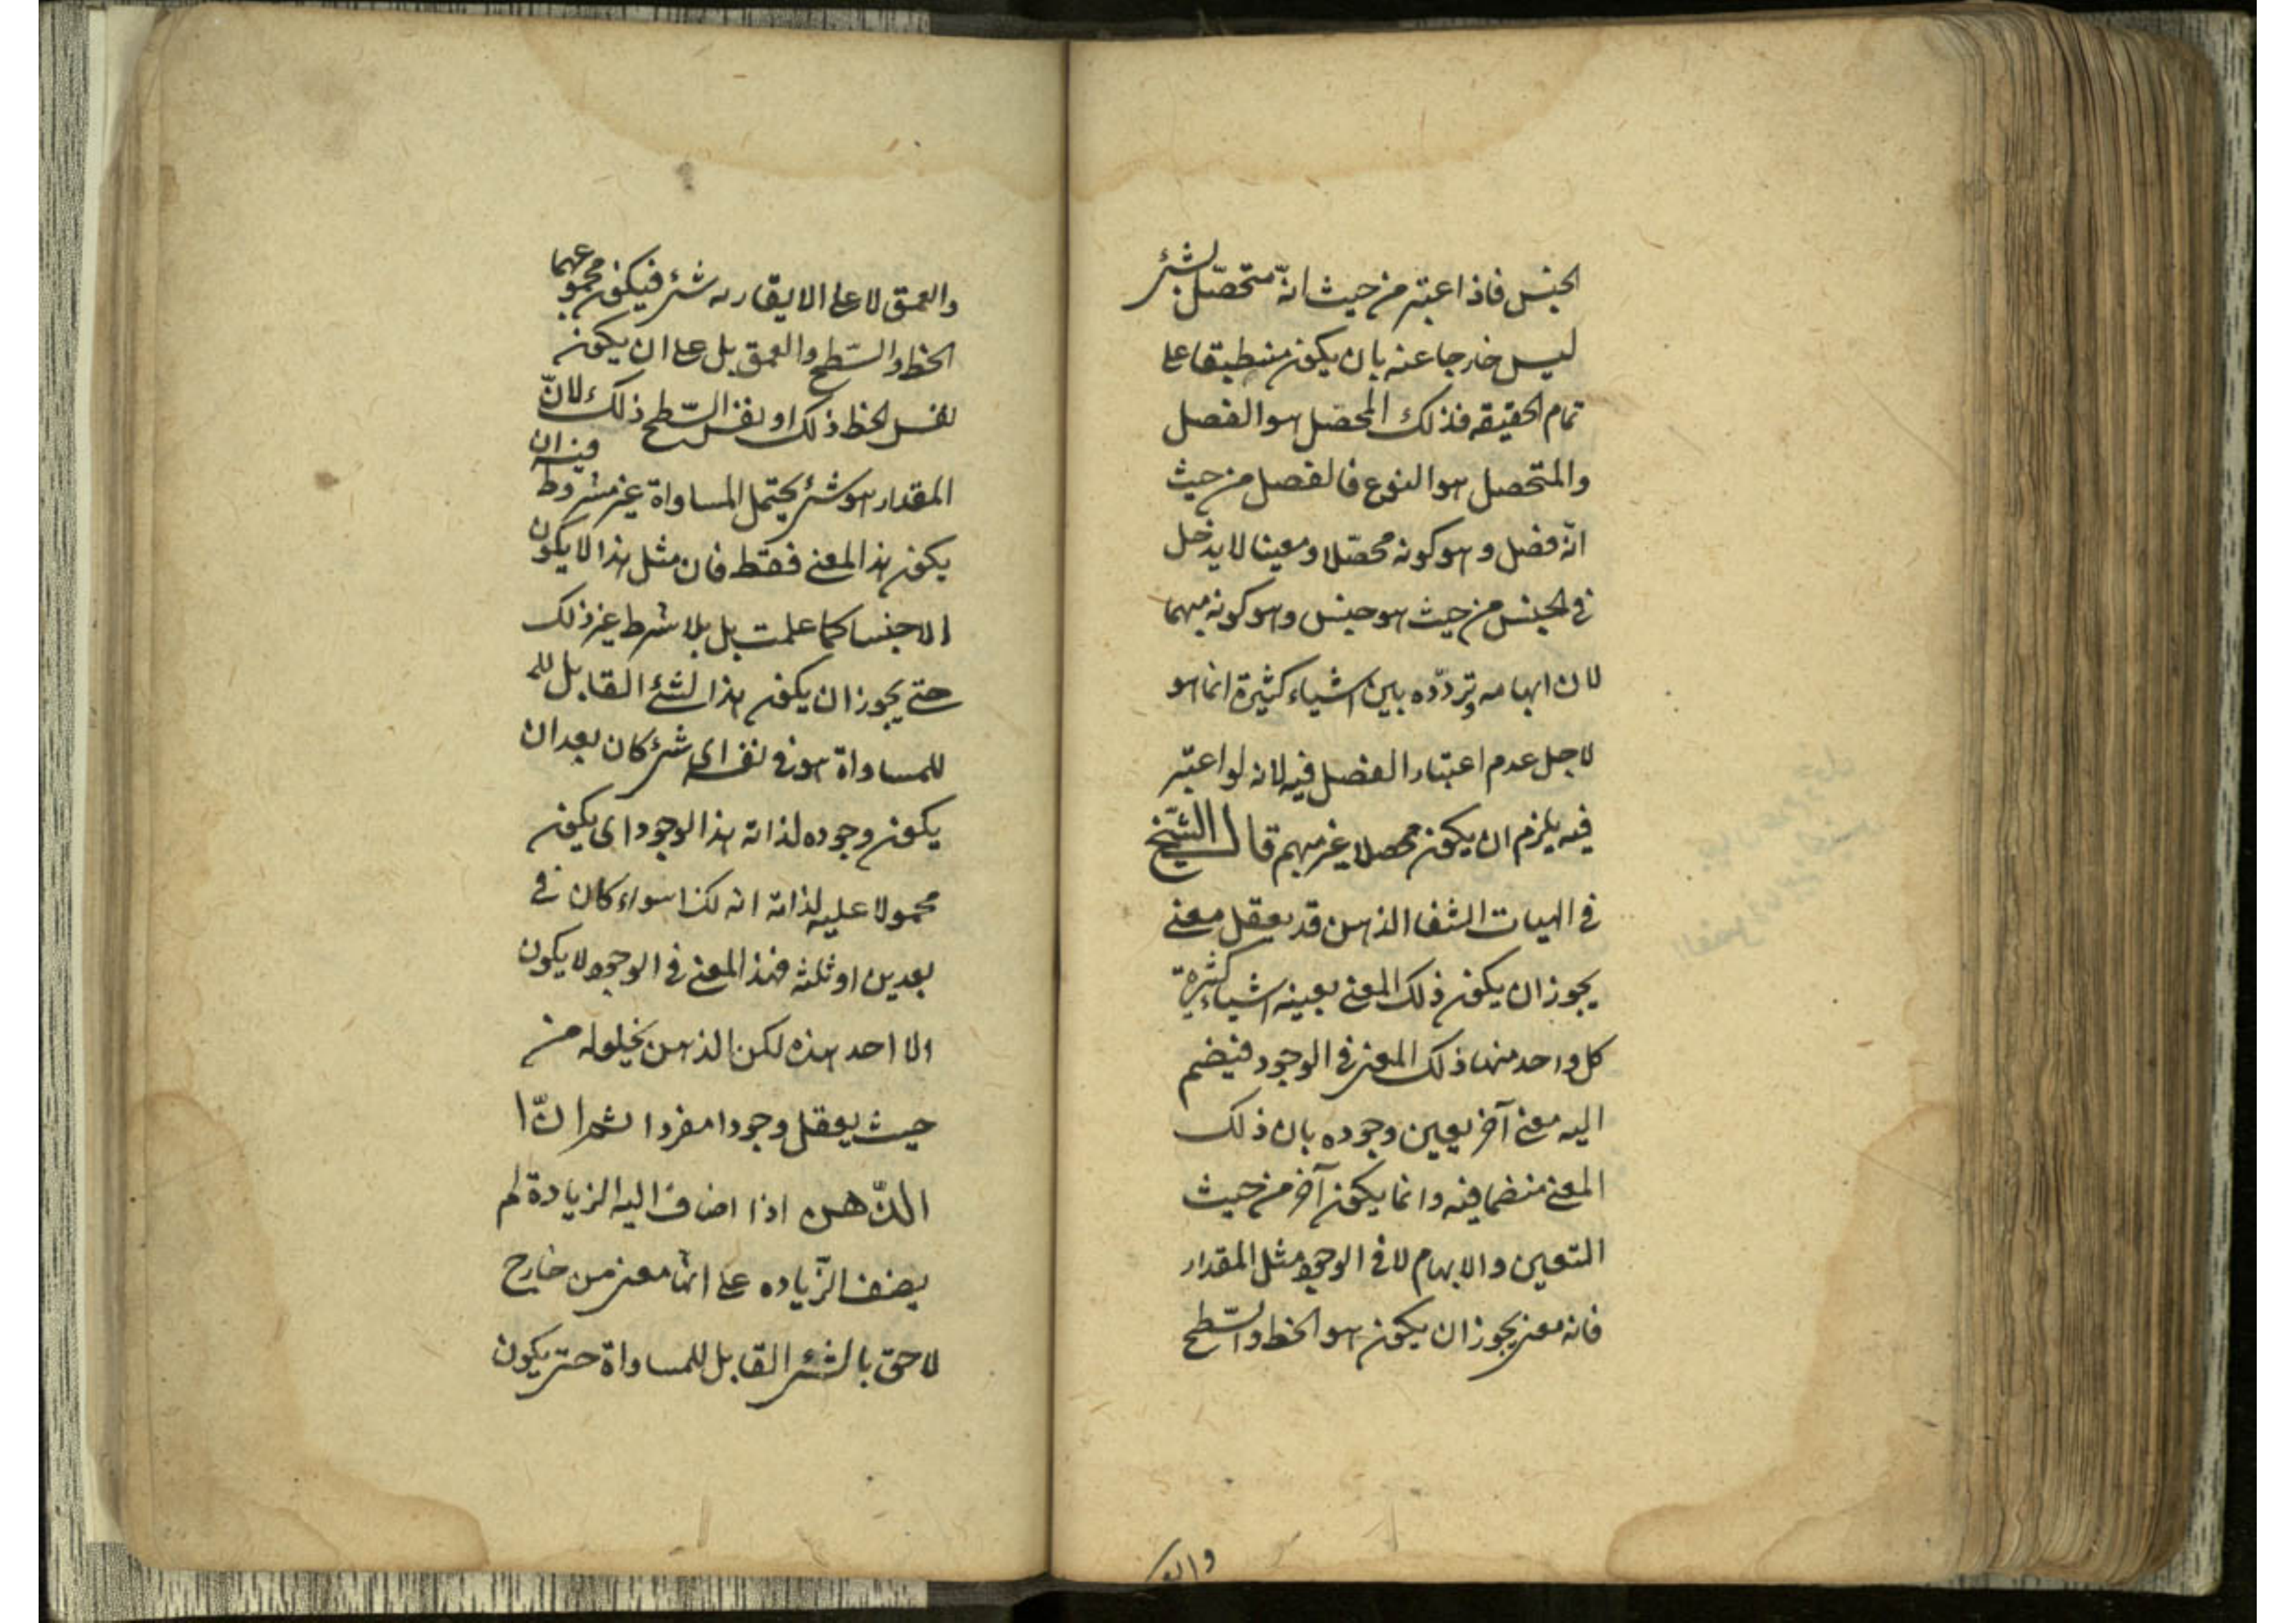 الجنس فاذا اعتبر من حيث انّه متحصّل بشئ
ليس خارجا عنه بان يكون منطبقا على
تمام الحقيقه فذلك المحصّل هو الفصل
والمتحصل هو النوع فالفصل من حيث
انّه فصل و هو كونه محصّلا و معينا لا يدخل
فى الجنس من حيث هو جنس وهو كونه مبهما
لان ابهامه وتردّده بين اشياء كثيرة انما هو
لاجل عدم اعتبار الفصل فيه لانه لو اعتبر
فيه يلزم ان يكون محصلا غير مبهم قال الشّيخ
فى الهيات الشفا الذهن قد يعقل معنى
يجوز ان يكون ذلك المعنى بعينه اشياء كثيرة
كل واحد منها ذلك المعنى فى الوجود فيضم
اليه معنى آخر يعين وجوده بان ذلك
المعنى منضما فيه وانما يكون آخر من حيث
التعين والابهام لا فى الوجود مثل المقدار
فانه معنى يجوز ان يكون هو الخط والسّطح
والعمق لا على الا يقارنه شئ فيكون مجموعهما
الخط والسّطح والعمق بل على ان يكون
نفس الخط ذلك او نفس السّطح ذلك لانّ
المقدار هو شئ يحتمل المساواة غير مشروط فيه ان
يكون هذا المعنى فقط فان مثل هذا لا يكون
الا جنسا كما علمت بل بلا شرط غير ذلك
حتى يجوز ان يكون هذا الشئ القابل للم
للمساواة هو فى نفسه اى شئ كان بعد ان
يكون وجوده لذاته هذا الوجود اى يكون
محمولا عليه لذاته انه كذا سواء كان فى
بعدين او ثلثه فهذا المعنى فى الوجود لا يكون
الا احد هذه لكن الذهن يخلق له من
حيث يعقل وجودا مفردا ثم انّ ا
الذّهن اذا اضاف اليه الزيادة لم
يضف الزّياده على انها معنى من خارج
لاحق بالشئ القابل للمساواة حتى يكون